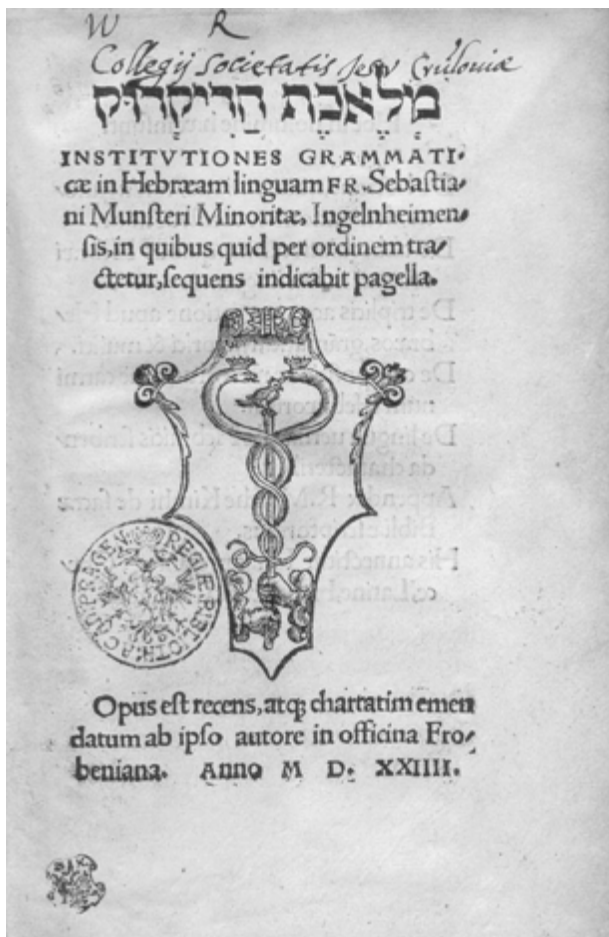 W R
Collegij Societatis Jesu
מְלֶאכֶת הַדִּיקְדּוּק
INSTITVTIONES GRAMMATI-
cæ in Hebræam linguam FR. Sebaſtia-
ni Munſteri Minoritæ, Ingelnheimen-
ſis, in quibus quid per ordinem tra-
ctetur, ſequens indicabit pagella.
REGIÆ BIBLIOTH: ACAD: PRAGEN:
Opus eſt recens, atq; chartatim emen
datum ab ipſo autore in officina Fro-
beniana. Anno M D. XXIIII.